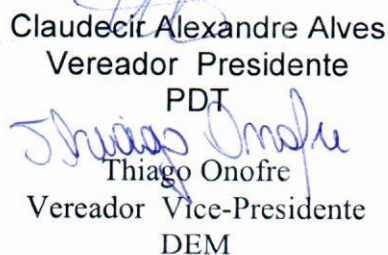 Claudecir Alexandre Alves
Vereador Presidente
PDT
Thiago Onofre
Thiago Onofre
Vereador Vice-Presidente
DEM